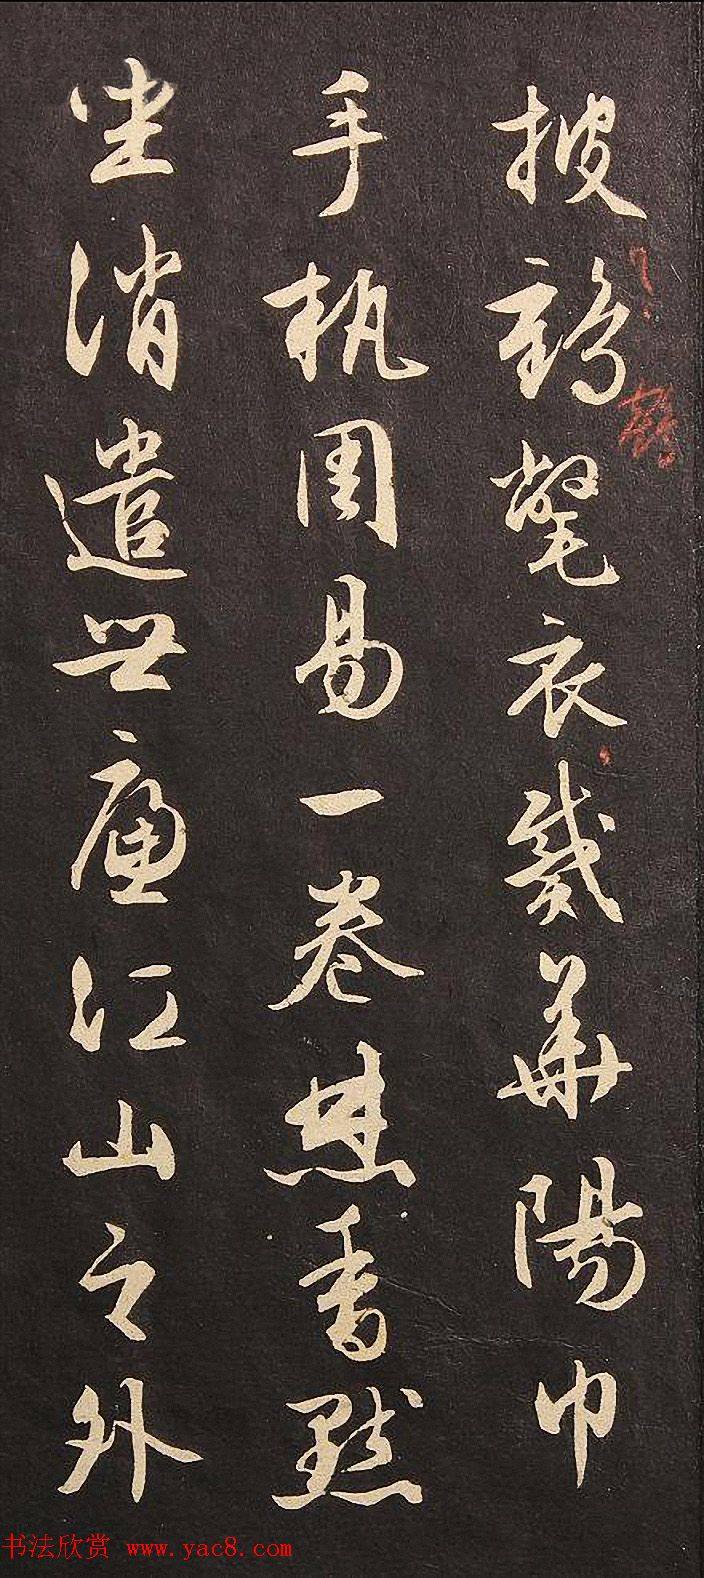 披鶴氅衣戴華陽巾
手執周易一卷焚香默
坐消遣世慮江山之外
书法欣赏 www.yac8.com